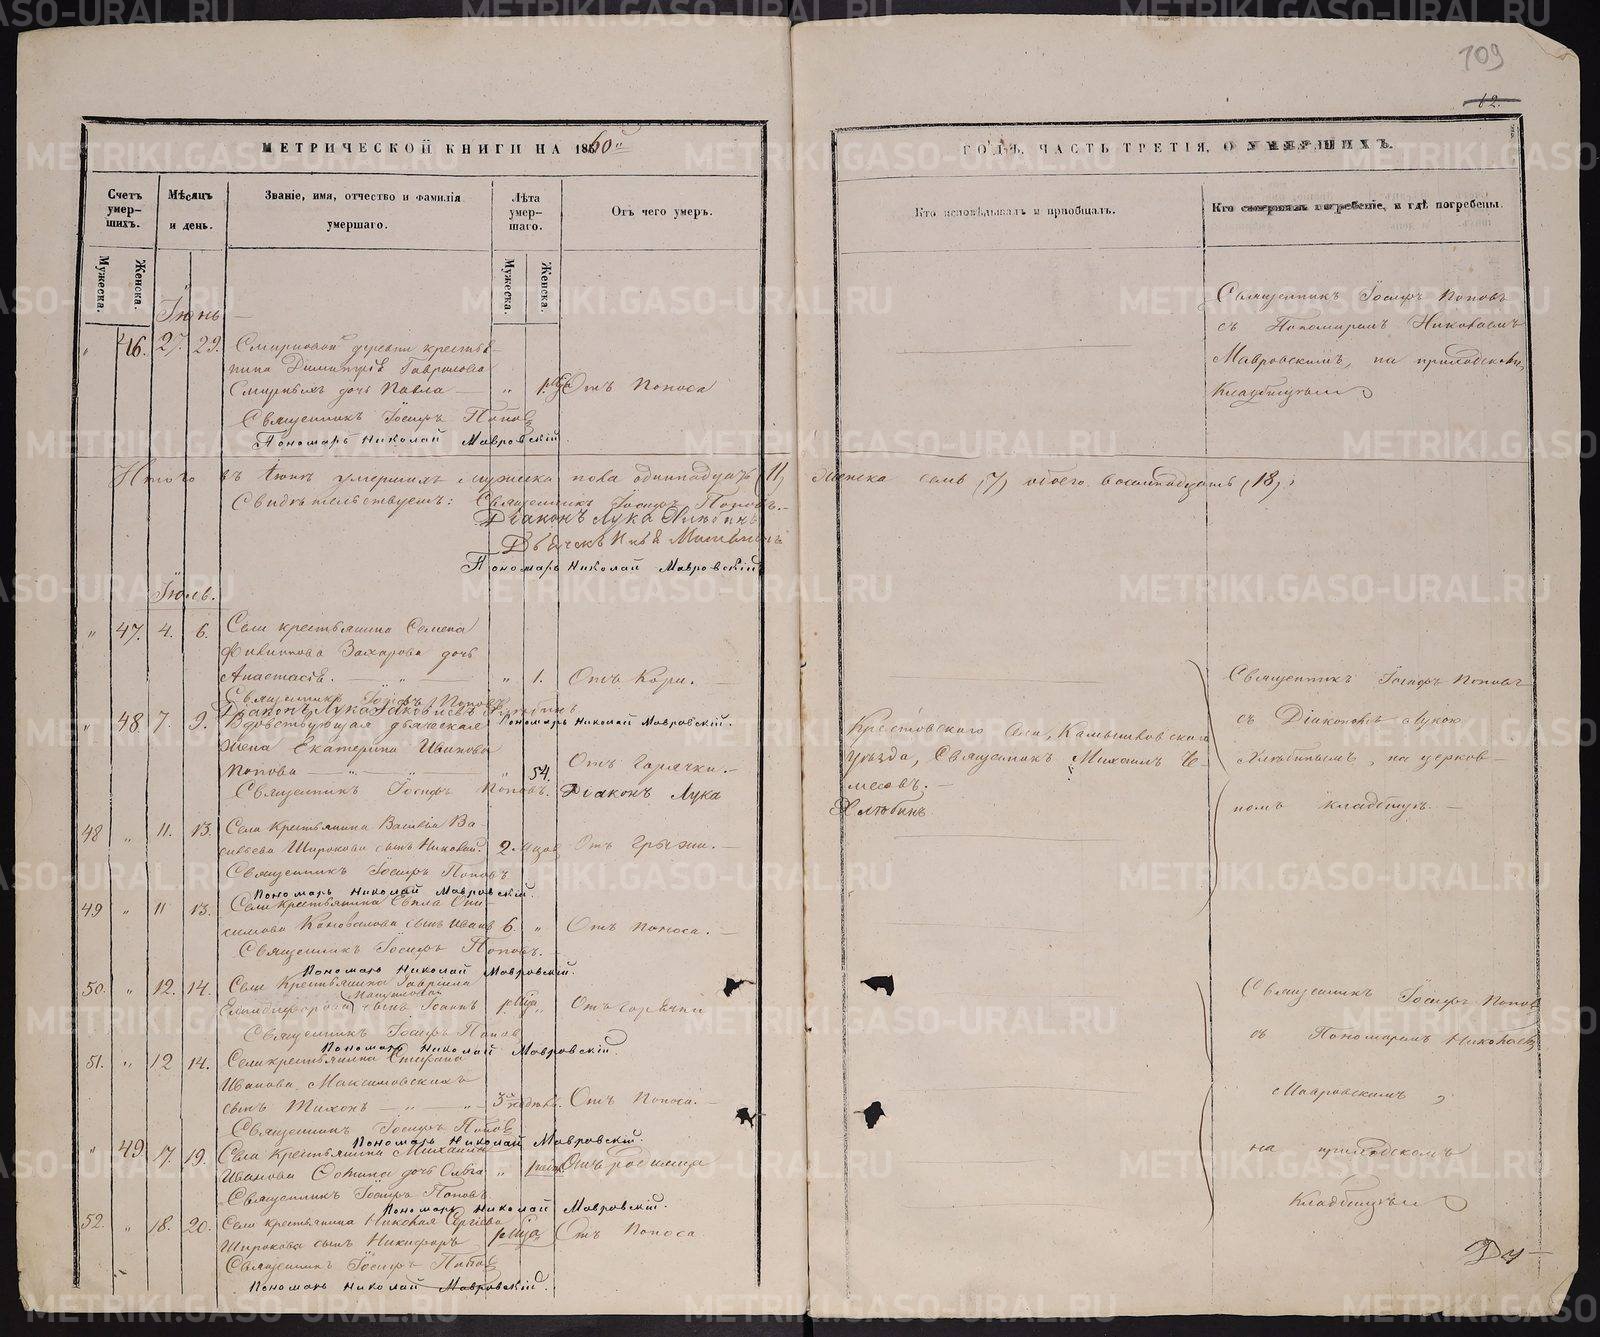 109
62.
МЕТРИЧЕСКОЙ КНИГИ НА 1860й
ГОДЪ, ЧАСТЬ ТРЕТІЯ, О УМЕРШИХЪ.
Счетъ умер-шихъ.
Мѣсяцъ и день.
Званіе, имя, отчество и фамилія умершаго.
Лѣта умер-шаго.
Отъ чего умеръ.
Кто исповѣдывалъ и пріобщалъ.
Кто совершалъ погребеніе, и гдѣ погребены.
Мужеска.
Женска.
Мужеска.
Женска.
Іюнь
" 46. 27. 29. Смирновой деревни крестья-
нина Димитрія Гаврилова
Смирныхъ дочь Павла — " Отъ Поноса
Священникъ Іосифъ Поповъ
Пономарь Николай Мавровскій
Священникъ Іосифъ Поповъ
съ Пономаремъ Николаемъ
Мавровскимъ, на приходскомъ
Кладбищѣ
Итого въ Іюнѣ умершихъ мужеска пола одиннадцать (11) Женска семь (7) обоего восемнадцать (18);
Свидѣтельствуемъ: Священникъ Іосифъ Поповъ.
Діаконъ Лука Хлѣбинъ
Дьячекъ
Пономарь Николай Мавровскій
Іюль.
" 47. 4. 6. Села крестьянина Семена
Филиппова Захарова дочь
Анастасія. — " — " 1. Отъ Кори.
Священникъ Іосифъ Поповъ
Діаконъ Лука Іаковлевъ Хлѣбинъ
Пономарь Николай Мавровскій.
" 48. 7. 9. Вдовствующая дьяческая
жена Екатерина Иванова
Попова — " — " 54. Отъ Горячки. —
Священникъ Іосифъ Поповъ. Діаконъ Лука Хлѣбинъ
Крестовского Села, Камышловского
уѣзда, Священникъ Михаилъ Че-
месовъ. —
Священникъ Іосифъ Поповъ
съ Діакономъ Лукою
Хлѣбинымъ, на церков-
номъ кладбищѣ. —
48 " 11. 13. Села Крестьянина Василія Ва-
сильева Широкова сынъ Николай. 2 мѣсяц Отъ Грыжи. —
Священникъ Іосифъ Поповъ
Пономарь Николай Мавровскій.
49 " 11 13. Села крестьянина Саввы Они-
симова Коновалова сынъ Иванъ 6. " Отъ Поноса. —
Священникъ Іосифъ Поповъ.
Пономарь Николай Мавровскій.
50. " 12. 14. Села Крестьянина Гавріила
сынъ Іоаннъ " Отъ горячки
Священникъ Іосифъ Поповъ
Пономарь Николай Мавровскій.
51. " 12 14. Села крестьянина Стефана
Иванова Максимовскихъ
сынъ Тихонъ — " — " — 3 недѣл. Отъ Поноса. —
Священникъ Іосифъ Поповъ
Пономарь Николай Мавровскій.
" 49 17. 19. Села Крестьянина Михаила
Иванова дочь Ольга " Отъ родимца
Священникъ Іосифъ Поповъ
Пономарь Николай Мавровскій.
52. " 18. 20. Села крестьянина Николая Сергіева
Широкова сынъ Никифоръ Отъ Поноса
Священникъ Іосифъ Поповъ
Пономарь Николай Мавровскій.
Священникъ Іосифъ Поповъ
съ Пономаремъ Николаемъ
Мавровскимъ,
на приходскомъ
Кладбищѣ